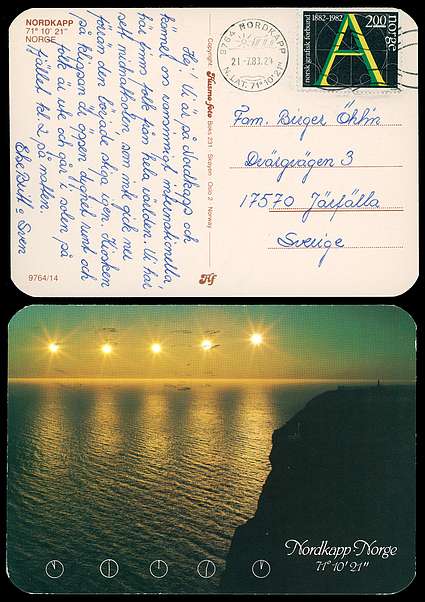 NORDKAPP
71° 10' 21"
NORGE
Hej! Vi är på Nordkapp och
kommit en varm midnattsolskväll,
här finns folk från hela världen. Vi har
sett midnattsolen som inte gick ner
förrän den började stiga igen. Kiosken
på klippan är öppen dygnet runt och
folk är ute och går i solen på
fjället kl. 2 på natten.
Else-Britt o Sven
9764/14
Copyright Husmo-foto Boks 231 - Skøyen Oslo 2 - Norway
Hf
9764 NORDKAPP
21-7.83.21
N. LAT. 71°10'21"
norsk grafisk forbund
1882-1982
200
norge
A
Fam. Birger Öhlin
Dvärgvägen 3
17570 Järfälla
Sverige
Nordkapp-Norge
71° 10' 21"